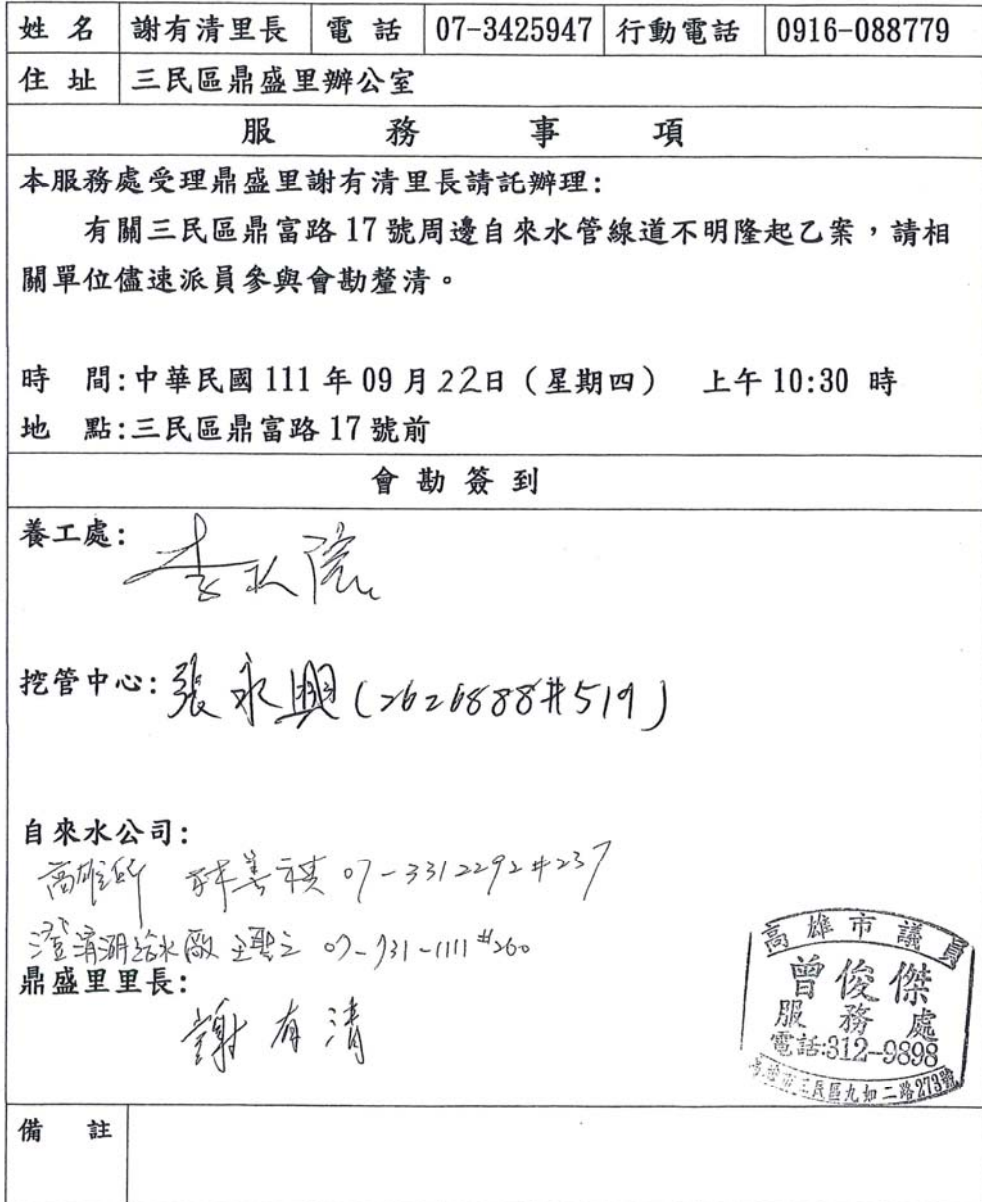 姓 名 謝有清里長 電 話 07-3425947 行動電話 0916-088779
住 址 三民區鼎盛里辦公室
服 務 事 項
本服務處受理鼎盛里謝有清里長請託辦理:
有關三民區鼎富路 17 號周邊自來水管線道不明隆起乙案，請相
關單位儘速派員參與會勘釐清。
時 間:中華民國 111 年 09 月 22日（星期四） 上午 10:30 時
地 點:三民區鼎富路 17 號前
會 勘 簽 到
養工處:
挖管中心: 張永興 (2626888#519)
自來水公司:
高雄所 善祺 07-3312292#237
澄清湖給水廠 07-731-1111#260
鼎盛里里長:
謝有清
高雄市議員
曾俊傑
服務處
電話:312-9898
高雄市三民區九如二路273號
備 註